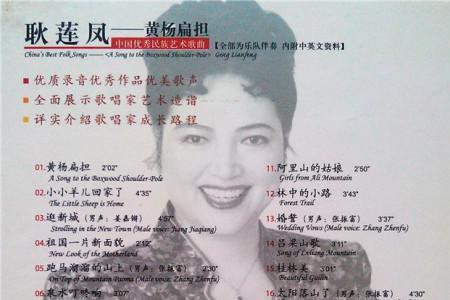 耿莲凤——黄杨扁担
中国优秀民族艺术歌曲 【全部为乐队伴奏 内附中英文资料】
China's Best Folk Songs —— <A Song to the Boxwood Shoulder-Pole> Geng Lianfeng
优质录音优秀作品优美歌声
全面展示歌唱家艺术造诣
详实介绍歌唱家成长路程
01.黄杨扁担 2'02"
A Song to the Boxwood Shoulder-Pole
02.小小羊儿回家了 4'35"
The Little Sheep is Home
03.逛新城（男声：姜嘉锵） 4'57"
Strolling in the New Town (Male voice: Jiang Jiaqiang)
04.祖国一片新面貌 2'12"
New Look of the Motherland
05.跑马溜溜的山上（男声：张振富） 2'30"
On Top of Mountain Paoma (Male voice: Zhang Zhenfu)
泉水叮咚响 3'07"
11.阿里山的姑娘 2'50"
Girls from Ali Mountain
12.林中的小路 3'43"
Forest Trail
13.婚誓（男声：张振富） 3'37"
Wedding Vows (Male voice: Zhang Zhenfu)
14.吕梁山歌 3'11"
Song of Lvliang Mountain
15.桂林美 3'01"
Beautiful Guilin
16.太阳落山了（男声：张振富）